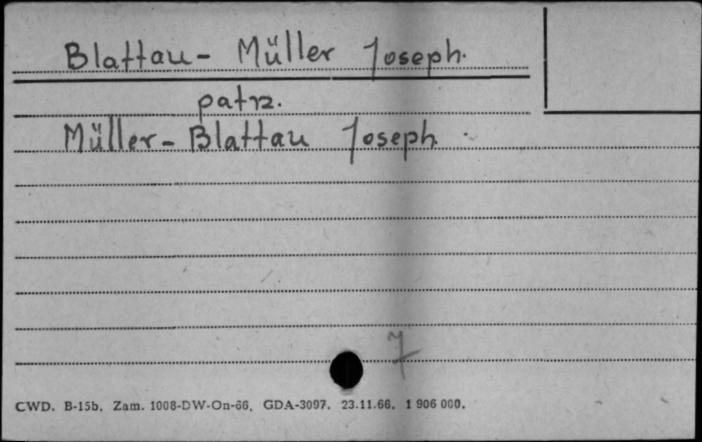 Blattau - Müller Joseph.
patrz.
Müller - Blattau Joseph
7
CWD. B-15b. Zam. 1008-DW-On-66. GDA-3097. 23.11.66. 1 906 000.